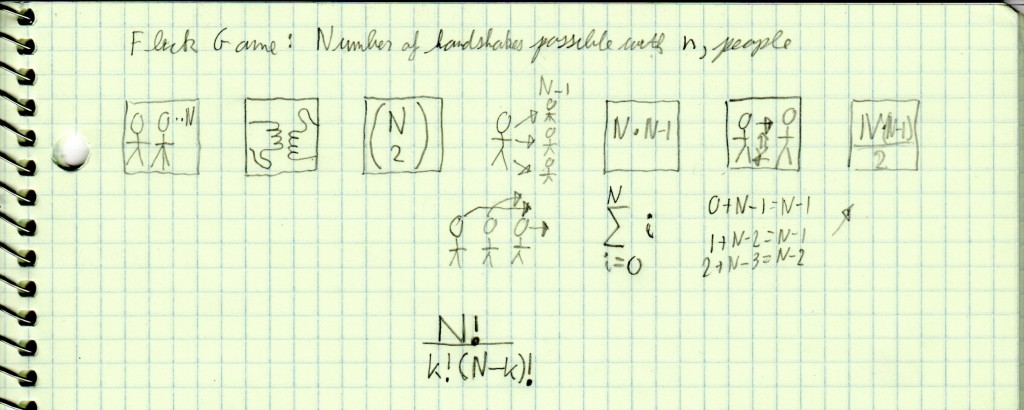 Flick Game: Number of handshakes possible with n, people
N-1
··N
(N 2)
N·N-1
N(N-1)
2
N
∑ i
i=0
0+N-1=N-1
1+N-2=N-1
2+N-3=N-2
N!
k!(N-k)!